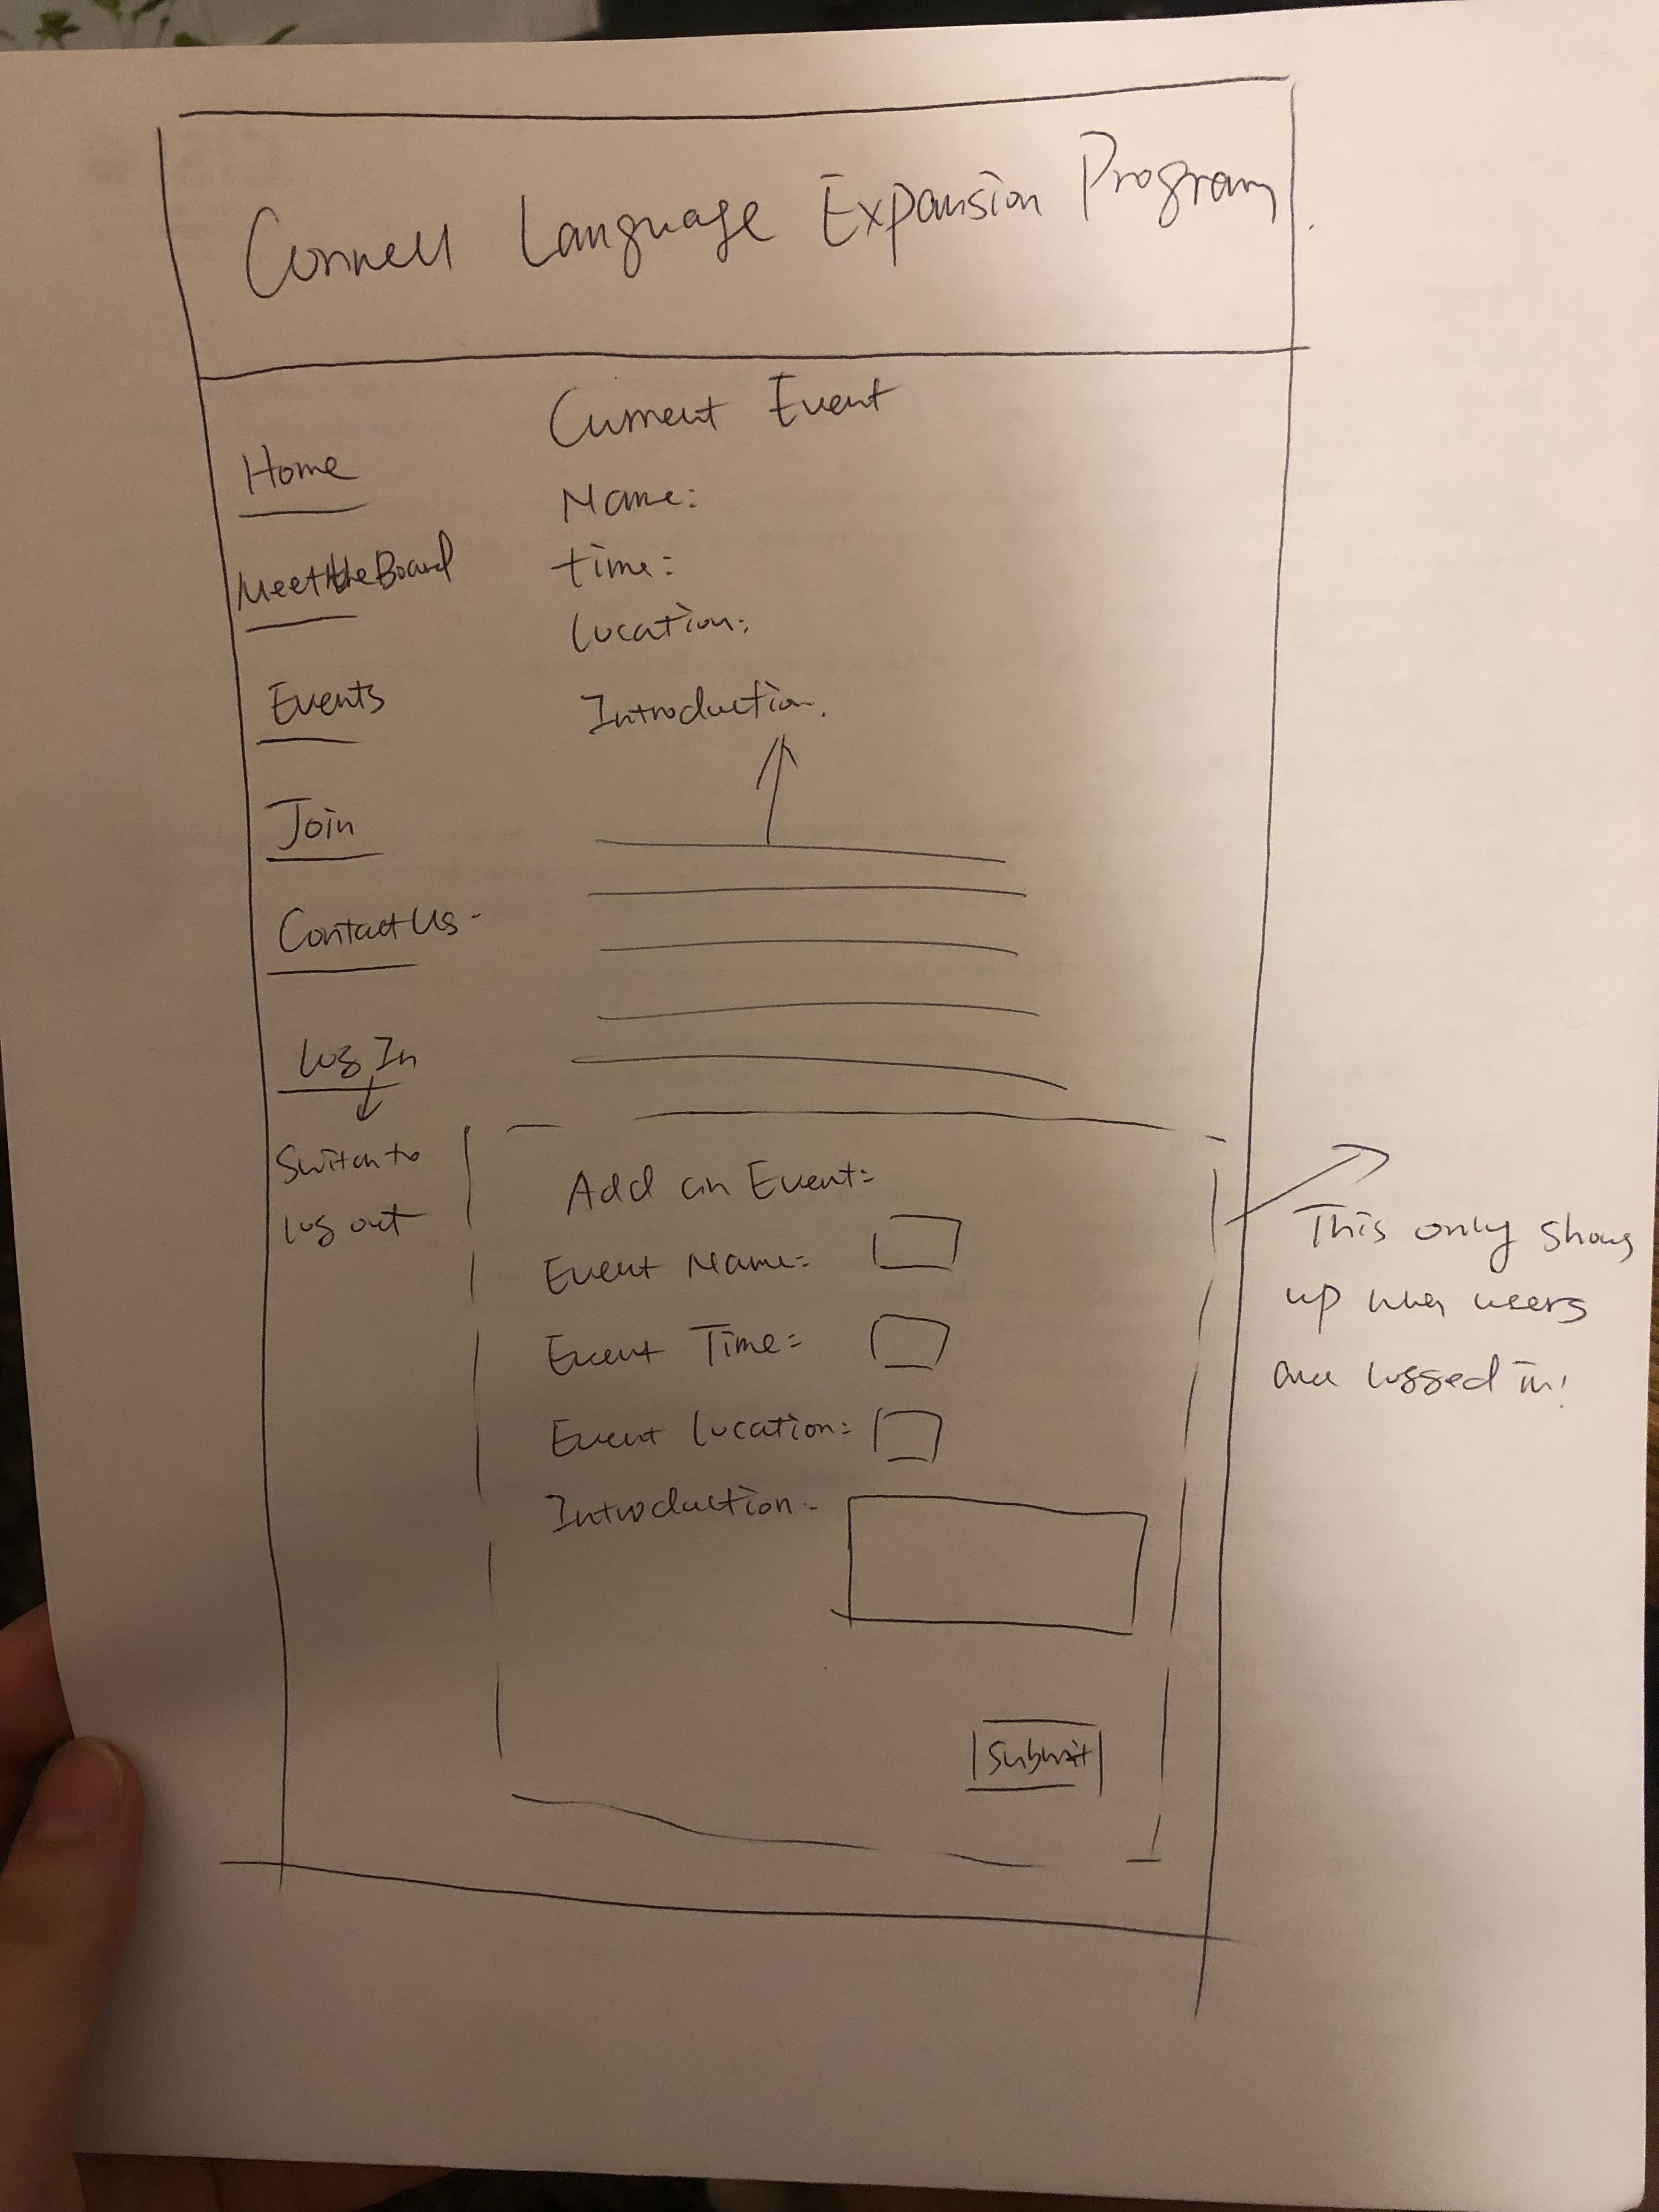 Cornell Language Expansion Program.
Home
Meet the Board
Events
Join
Contact Us
Log In
Switch to
log out
Current Event
Name:
time:
Location:
Introduction.
Add an Event:
Event Name:
Event Time:
Event Location:
Introduction:
Submit
This only shows
up when users
are logged in!